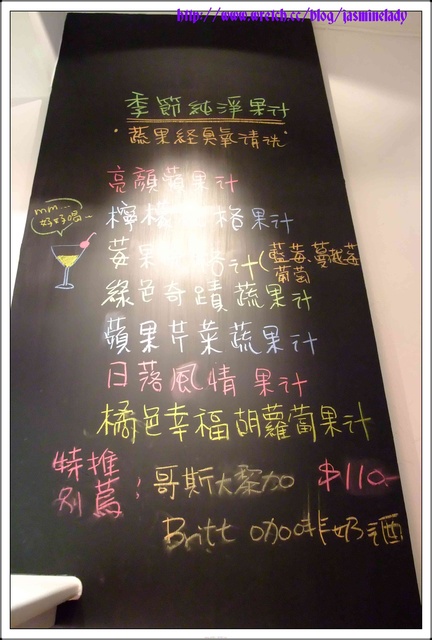 http://www.wretch.cc/blog/jasminelady
季節純淨果汁
*蔬果経臭氧清洗*
亮顏蘋果汁
檸檬 格果汁
mm...
好好喝~
莓果 汁(藍莓、蔓越莓
葡萄
綠色奇蹟蔬果汁
蘋果芹菜蔬果汁
日落風情果汁
橘色幸福胡蘿蔔果汁
特別推薦!
哥斯大黎加 $110.
Britt 咖啡奶酒